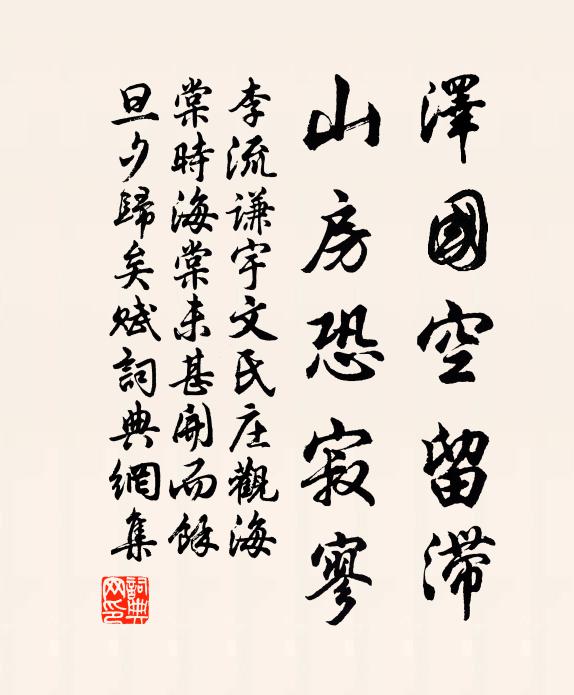 澤國空留滯
山房恐寂寥
李流謙宇文氏庄觀海
棠時海棠未甚開而餘
旦夕歸矣賦詞典網集
詞典网印